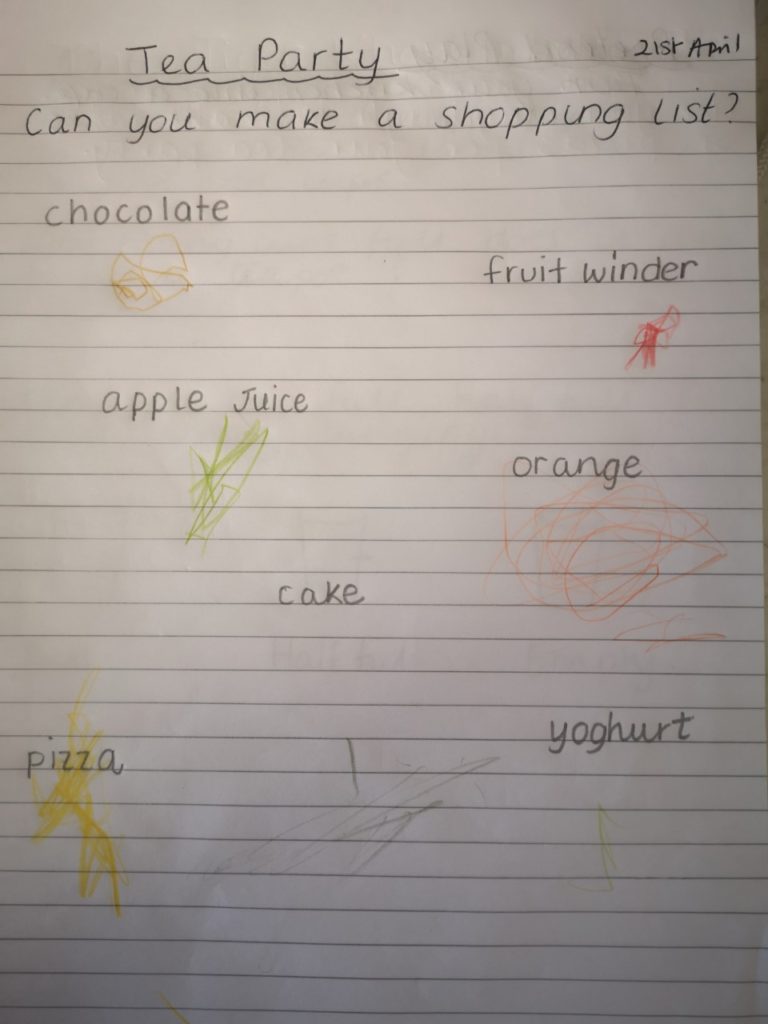 Tea Party
21st April
Can you make a shopping list?
chocolate
fruit winder
apple Juice
orange
cake
yoghurt
pizza